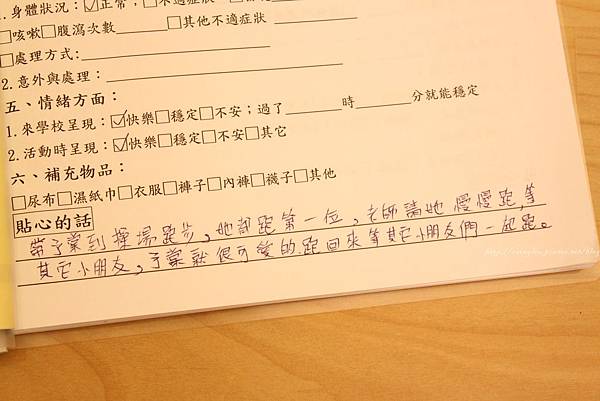 1.身體狀況：☑正常；□不適症狀
□咳嗽□腹瀉次數______□其他不適症狀______
□處理方式：______
2.意外與處理：______
五、情緒方面：
1.來學校呈現：☑快樂□穩定□不安；過了______時______分就能穩定
2.活動時呈現：☑快樂□穩定□不安□其它
六、補充物品：
□尿布□濕紙巾□衣服□褲子□內褲□襪子□其他
貼心的話
帶子棠到操場跑步，她都跑第一位，老師請她慢慢跑等
其它小朋友，子棠就很可愛的跑回來等其它小朋友們一起跑。